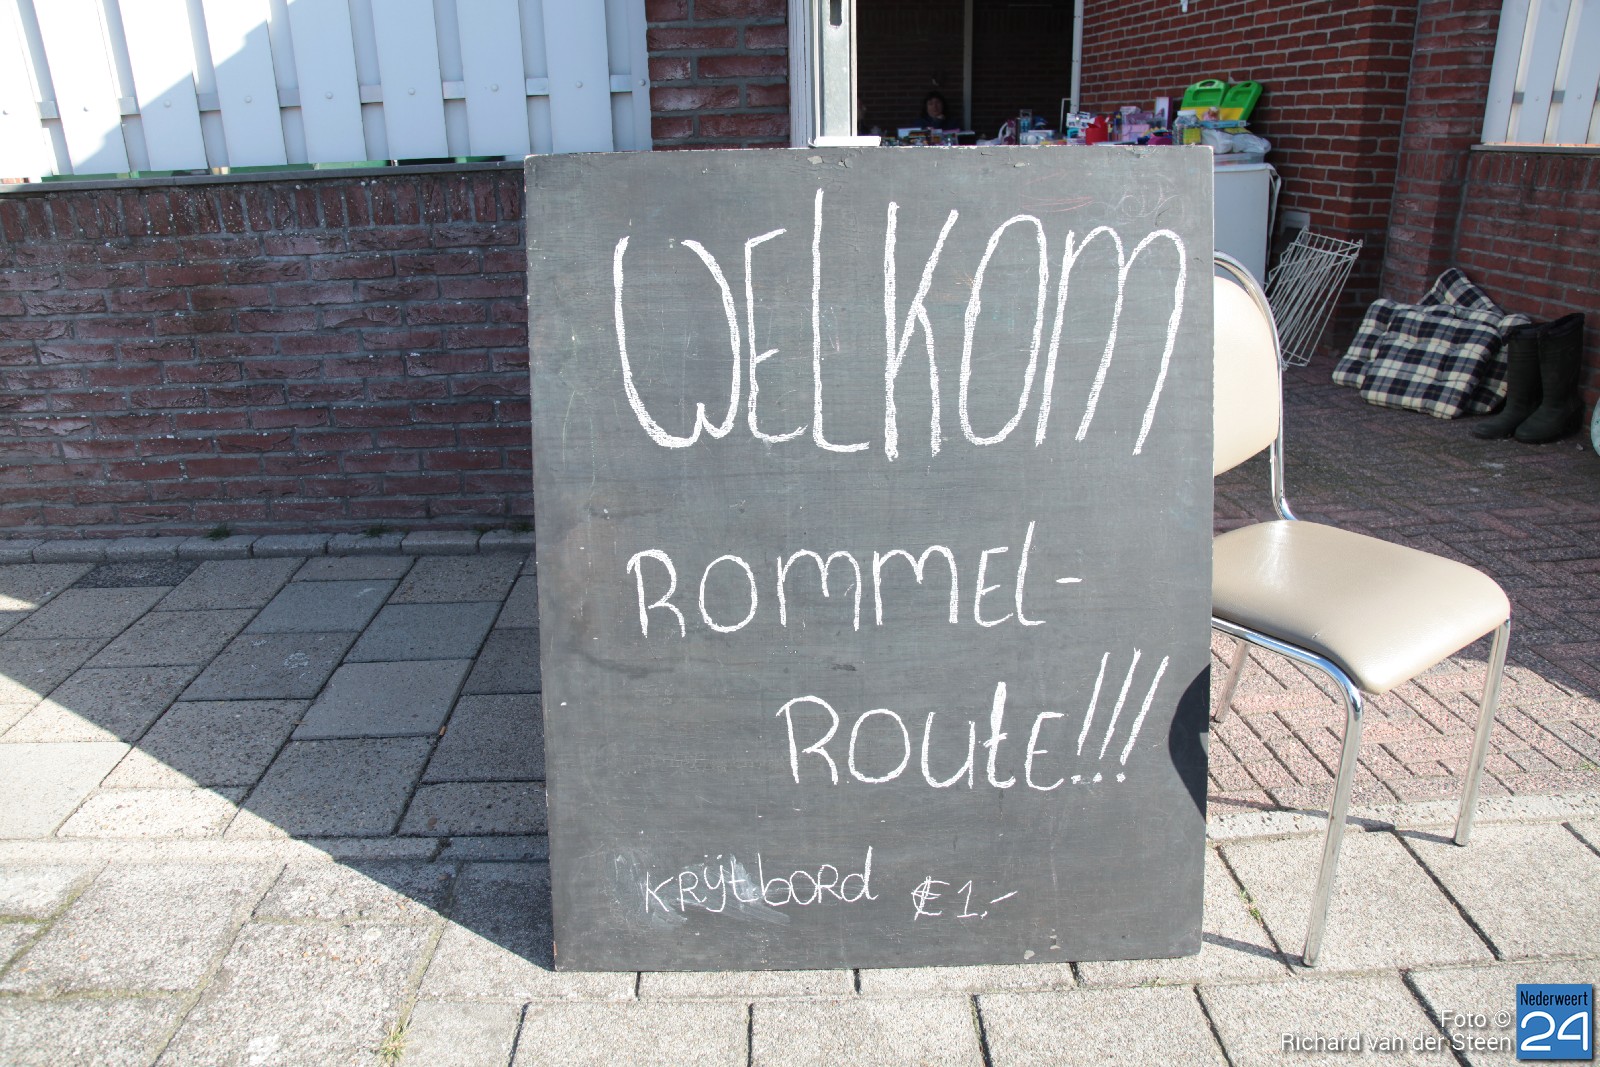 WELKOM
ROMMEL-
ROUtE!!!
KRijtboRd €1,-
Foto ©
Richard van der Steen
Nederweert
24